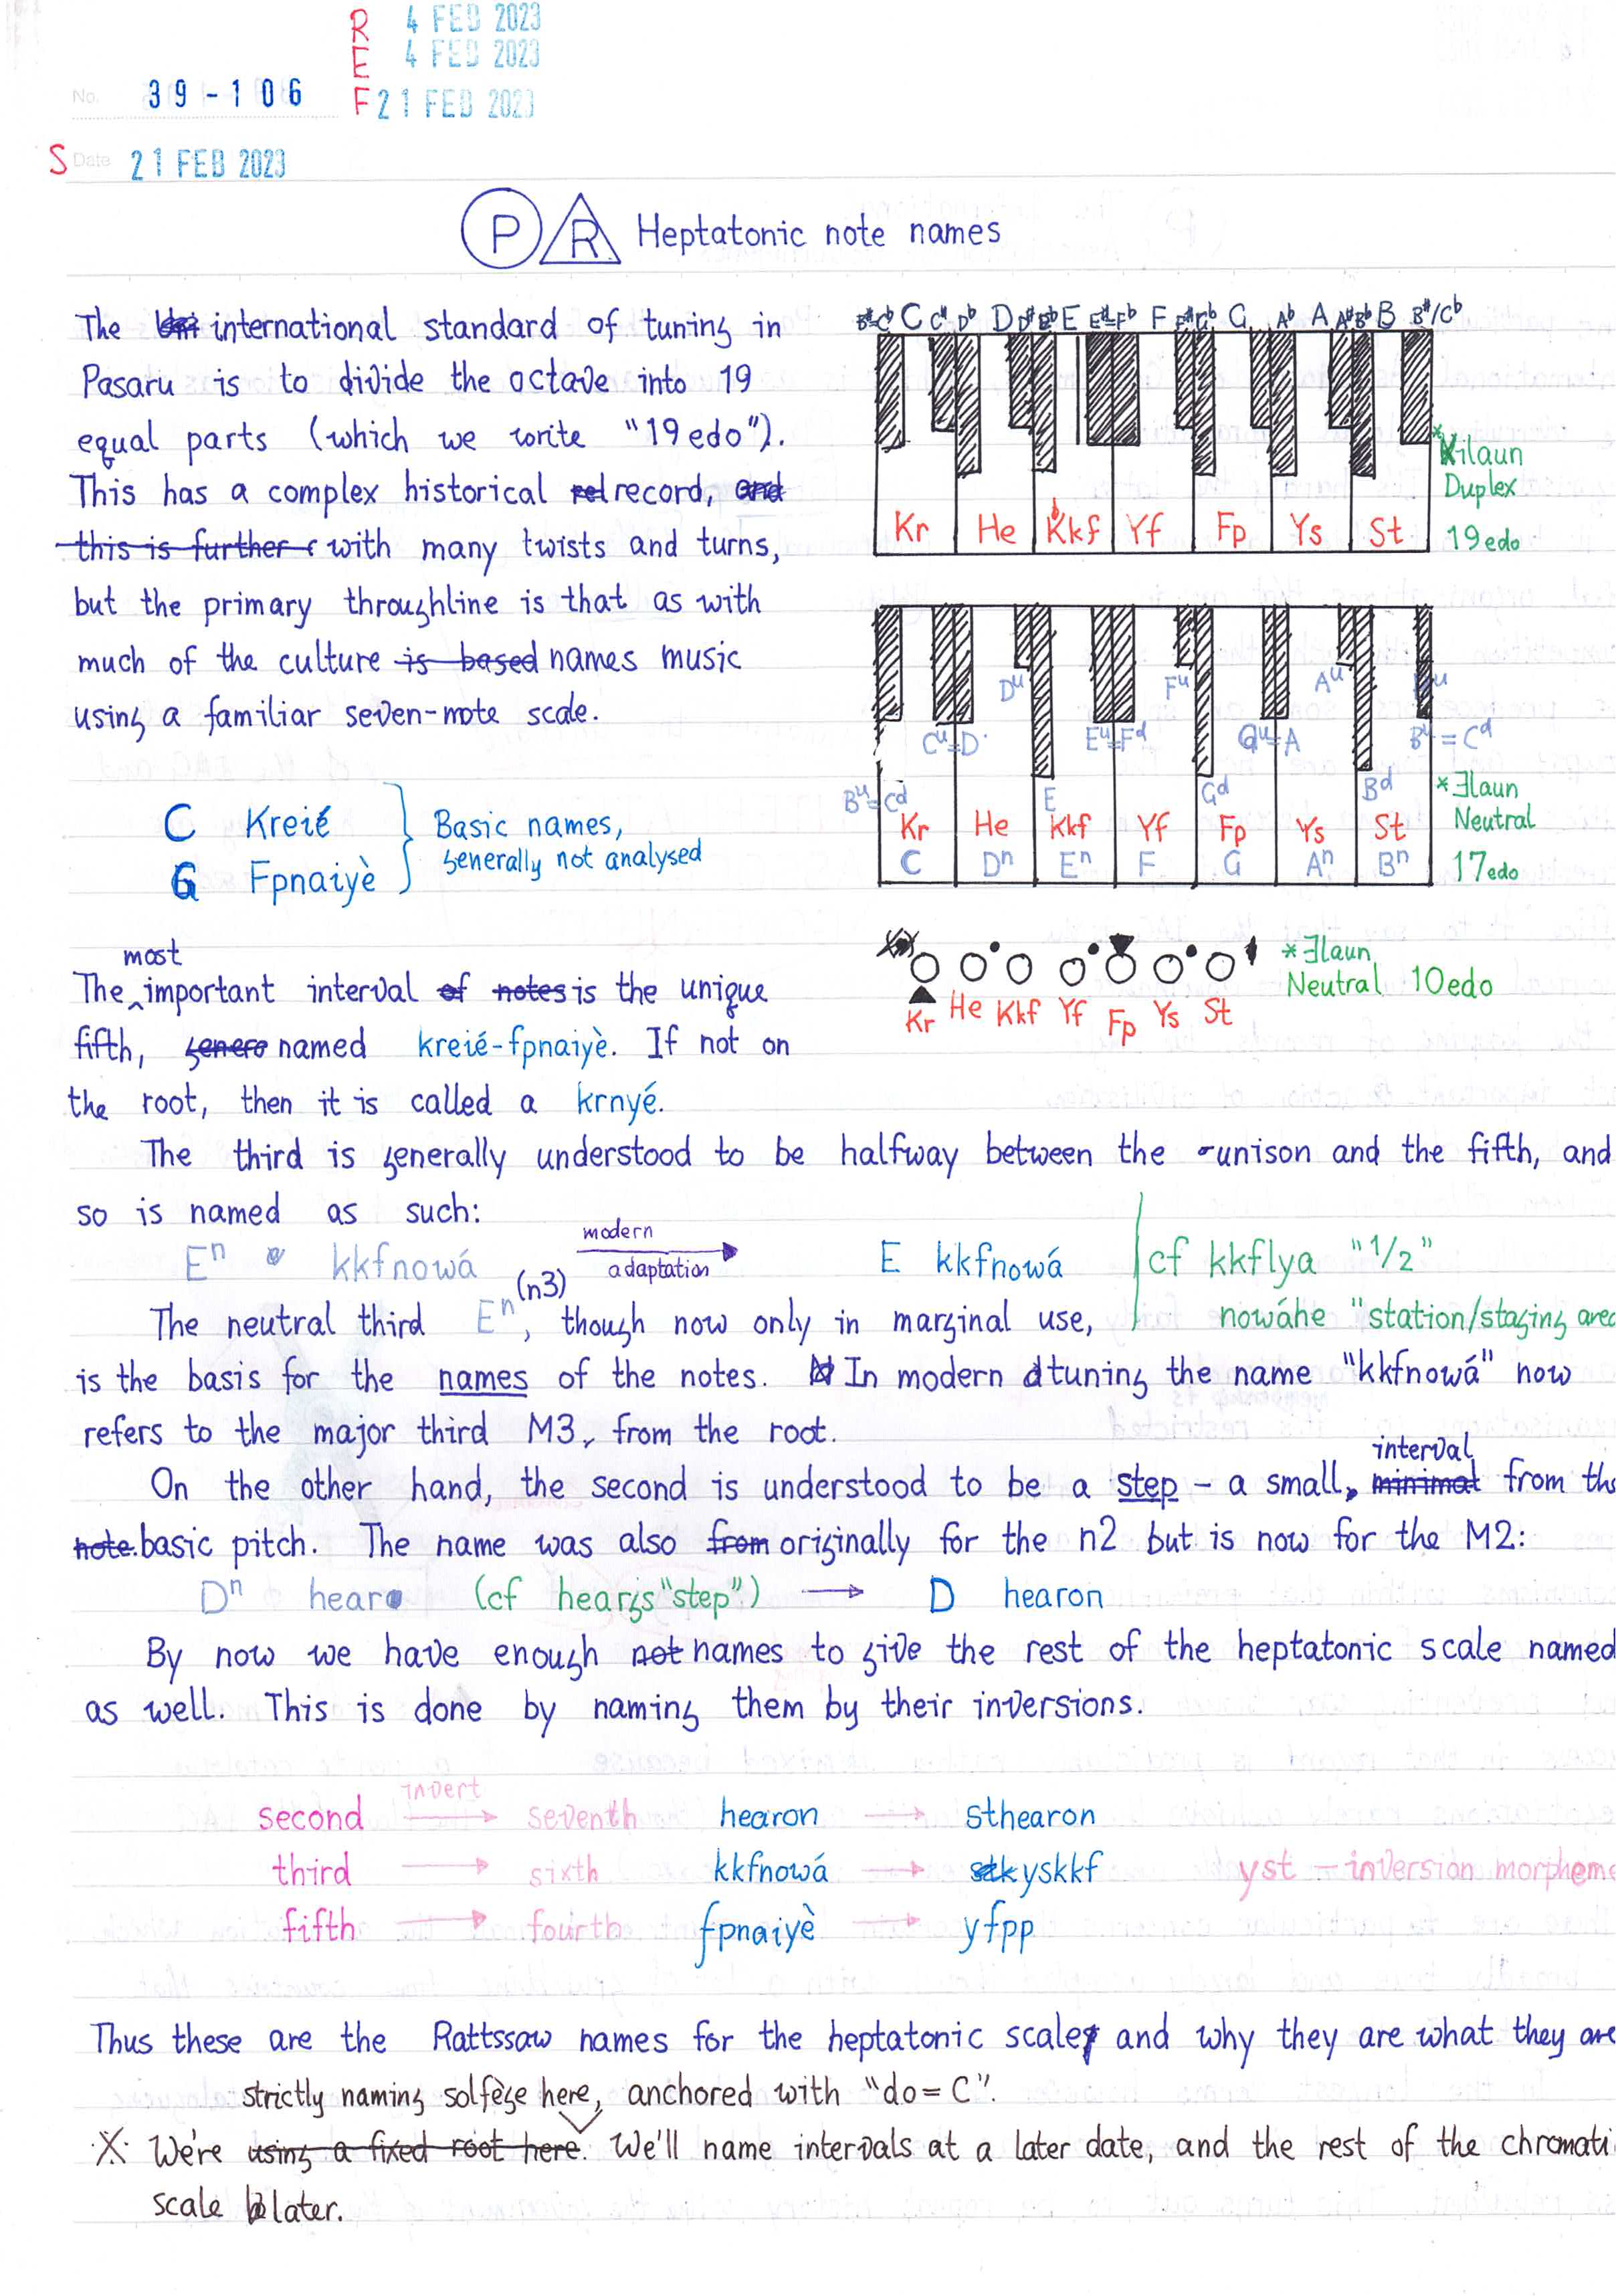 R 4 FEB 2023
E 4 FEB 2023
No. 39-106 F 21 FEB 2023
S Date 21 FEB 2023
P R Heptatonic note names
The international standard of tuning in
Pasaru is to divide the octave into 19
equal parts (which we write "19edo").
This has a complex historical record, and
this is further with many twists and turns,
but the primary throughline is that as with
much of the culture is based names music
using a familiar seven-note scale.
B#=Cb C C# Db D D# Eb E E#=Fb F F# Gb G Ab A A# Bb B B#/Cb
Kr He Kkf Yf Fp Ys St
*Xilaun
Duplex
19edo
Du Fu Au
Cu=D Eu=Fd Gu=A Bu=Cd
Bu=Cd E Gd Bd
Kr He Kkf Yf Fp Ys St
C Dn En F G An Bn
*Ǝlaun
Neutral
17edo
C Kreié
G Fpnaiyè
Basic names,
generally not analysed
*Ǝlaun
Neutral 10edo
Kr He Kkf Yf Fp Ys St
most
The important interval of notes is the unique
fifth, named kreié-fpnaiyè. If not on
the root, then it is called a krnyé.
The third is generally understood to be halfway between the unison and the fifth, and
so is named as such:
En kkfnowá modern adaptation E kkfnowá cf kkflya "1/2"
nowáhe "station/staging area
(n3)
The neutral third En, though now only in marginal use,
is the basis for the names of the notes. In modern tuning the name "kkfnowá" now
refers to the major third M3, from the root.
interval
On the other hand, the second is understood to be a step - a small, minimal from the
note. basic pitch. The name was also from originally for the n2 but is now for the M2:
Dn hear (cf heargs "step") → D hearon
By now we have enough not names to give the rest of the heptatonic scale named
as well. This is done by naming them by their inversions.
invert
second → seventh hearon → sthearon
third → sixth kkfnowá → yskkf yst - inversion morpheme
fifth → fourth fpnaiyè → yfpp
Thus these are the Rattssaw names for the heptatonic scale, and why they are what they are
strictly naming solfège here, anchored with "do=C".
※ We're using a fixed root here. We'll name intervals at a later date, and the rest of the chromati
scale later.